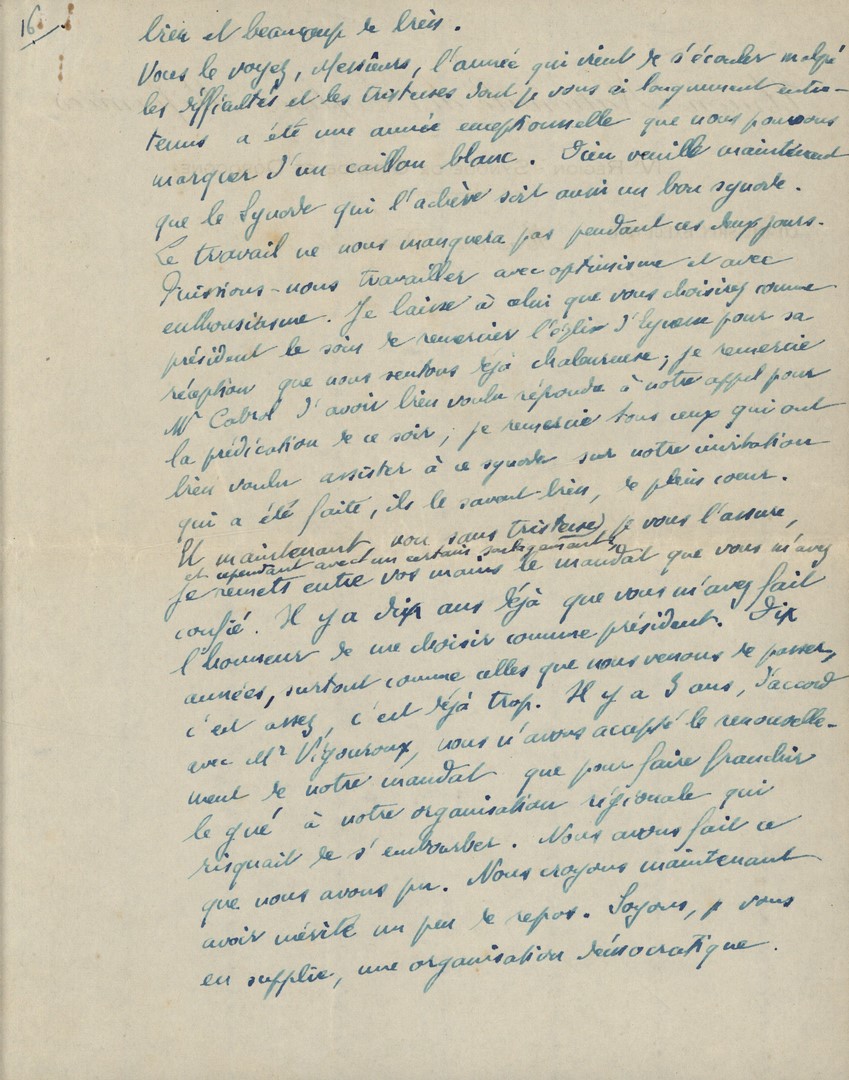 16
bien et beaucoup de bien.
Vous le voyez, Messieurs, l'année qui vient de s'écouler malgré
les difficultés et les tristesses dont je vous ai longuement entre-
tenus a été une année exceptionnelle que nous pouvons
marquer d'un caillou blanc. Dieu veuille maintenant
que le Synode qui l'achève soit aussi un bon synode.
Le travail ne nous manquera pas pendant ces deux jours.
Puissions-nous travailler avec optimisme et avec
enthousiasme. Je laisse à celui que vous choisirez comme
président le soin de remercier l'église d' pour sa
réception que nous sentons déjà chaleureuse; je remercie
Mr Cabrol d'avoir bien voulu répondre à notre appel pour
la prédication de ce soir; je remercie tous ceux qui ont
bien voulu assister à ce synode sur notre invitation
qui a été faite, ils le savent bien, de plein coeur.
Et maintenant non sans tristesse, je vous l'assure,
et cependant avec un certain soulagement,
je remets entre vos mains le mandat que vous m'avez
confié. Il y a dix ans déjà que vous m'avez fait
l'honneur de me choisir comme président. Dix
années, surtout comme celles que nous venons de passer,
c'est assez, c'est déjà trop. Il y a 3 ans, d'accord
avec Mr Vigouroux, nous n'avons accepté le renouvelle-
ment de notre mandat que pour faire franchir
le gué à notre organisation régionale qui
risquait de s'embourber. Nous avons fait ce
que nous avons pu. Nous croyons maintenant
avoir mérité un peu de repos. Soyons, je vous
en supplie, une organisation démocratique.